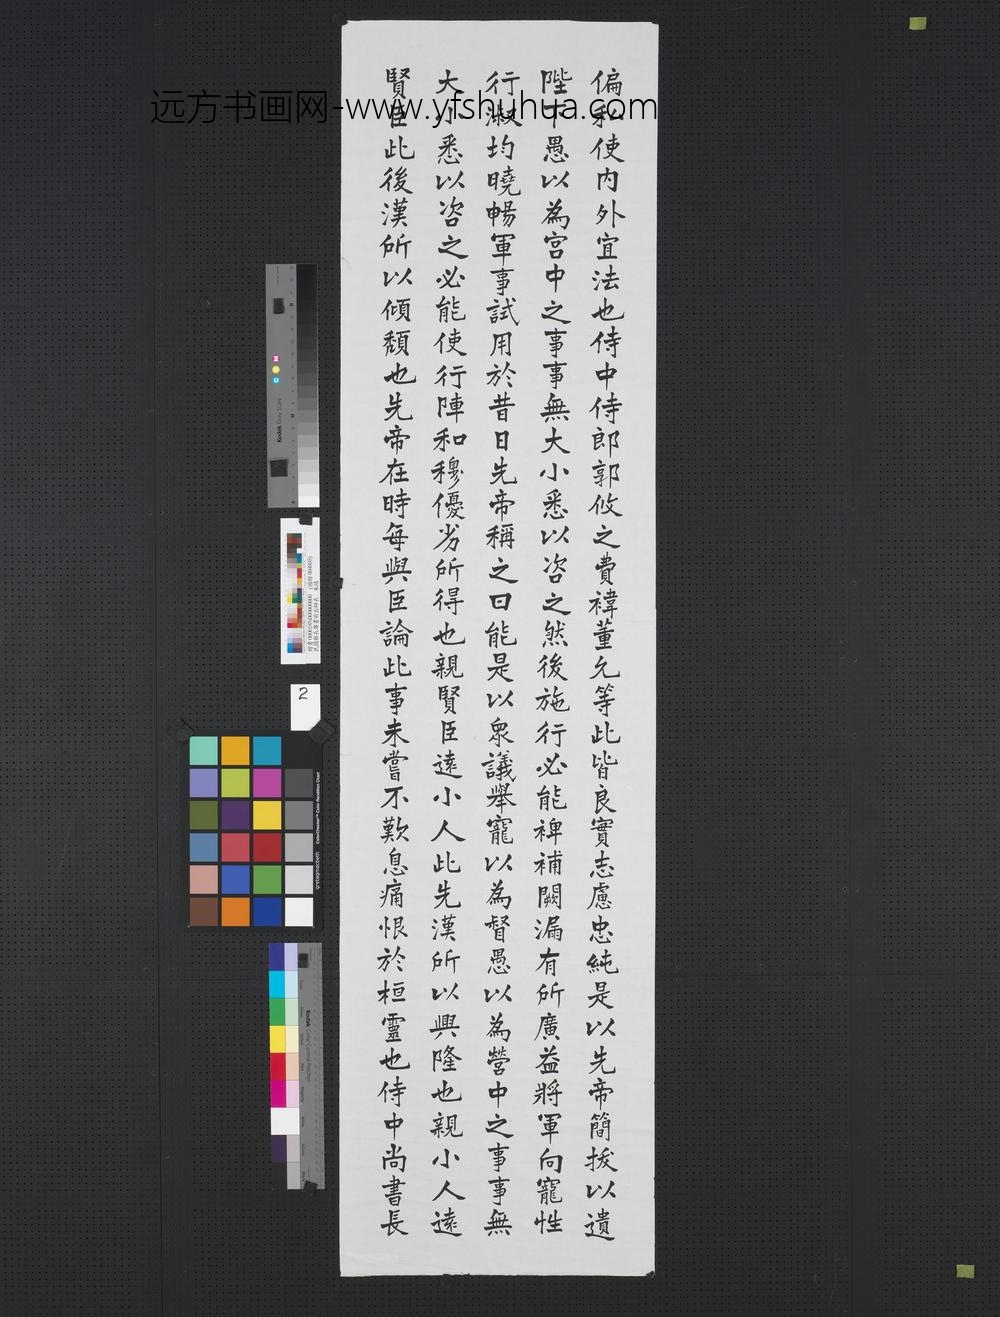 远方书画网-www.yfshuhua.com
偏私使内外宜法也侍中侍郎郭攸之費禕董允等此皆良實志慮忠純是以先帝簡拔以遺
陛下愚以為宮中之事事無大小悉以咨之然後施行必能裨補闕漏有所廣益將軍向寵性
行淑均曉暢軍事試用於昔日先帝稱之曰能是以眾議舉寵以為督愚以為營中之事事無
大小悉以咨之必能使行陣和穆優劣所得也親賢臣遠小人此先漢所以興隆也親小人遠
賢臣此後漢所以傾頹也先帝在時每與臣論此事未嘗不歎息痛恨於桓靈也侍中尚書長
2